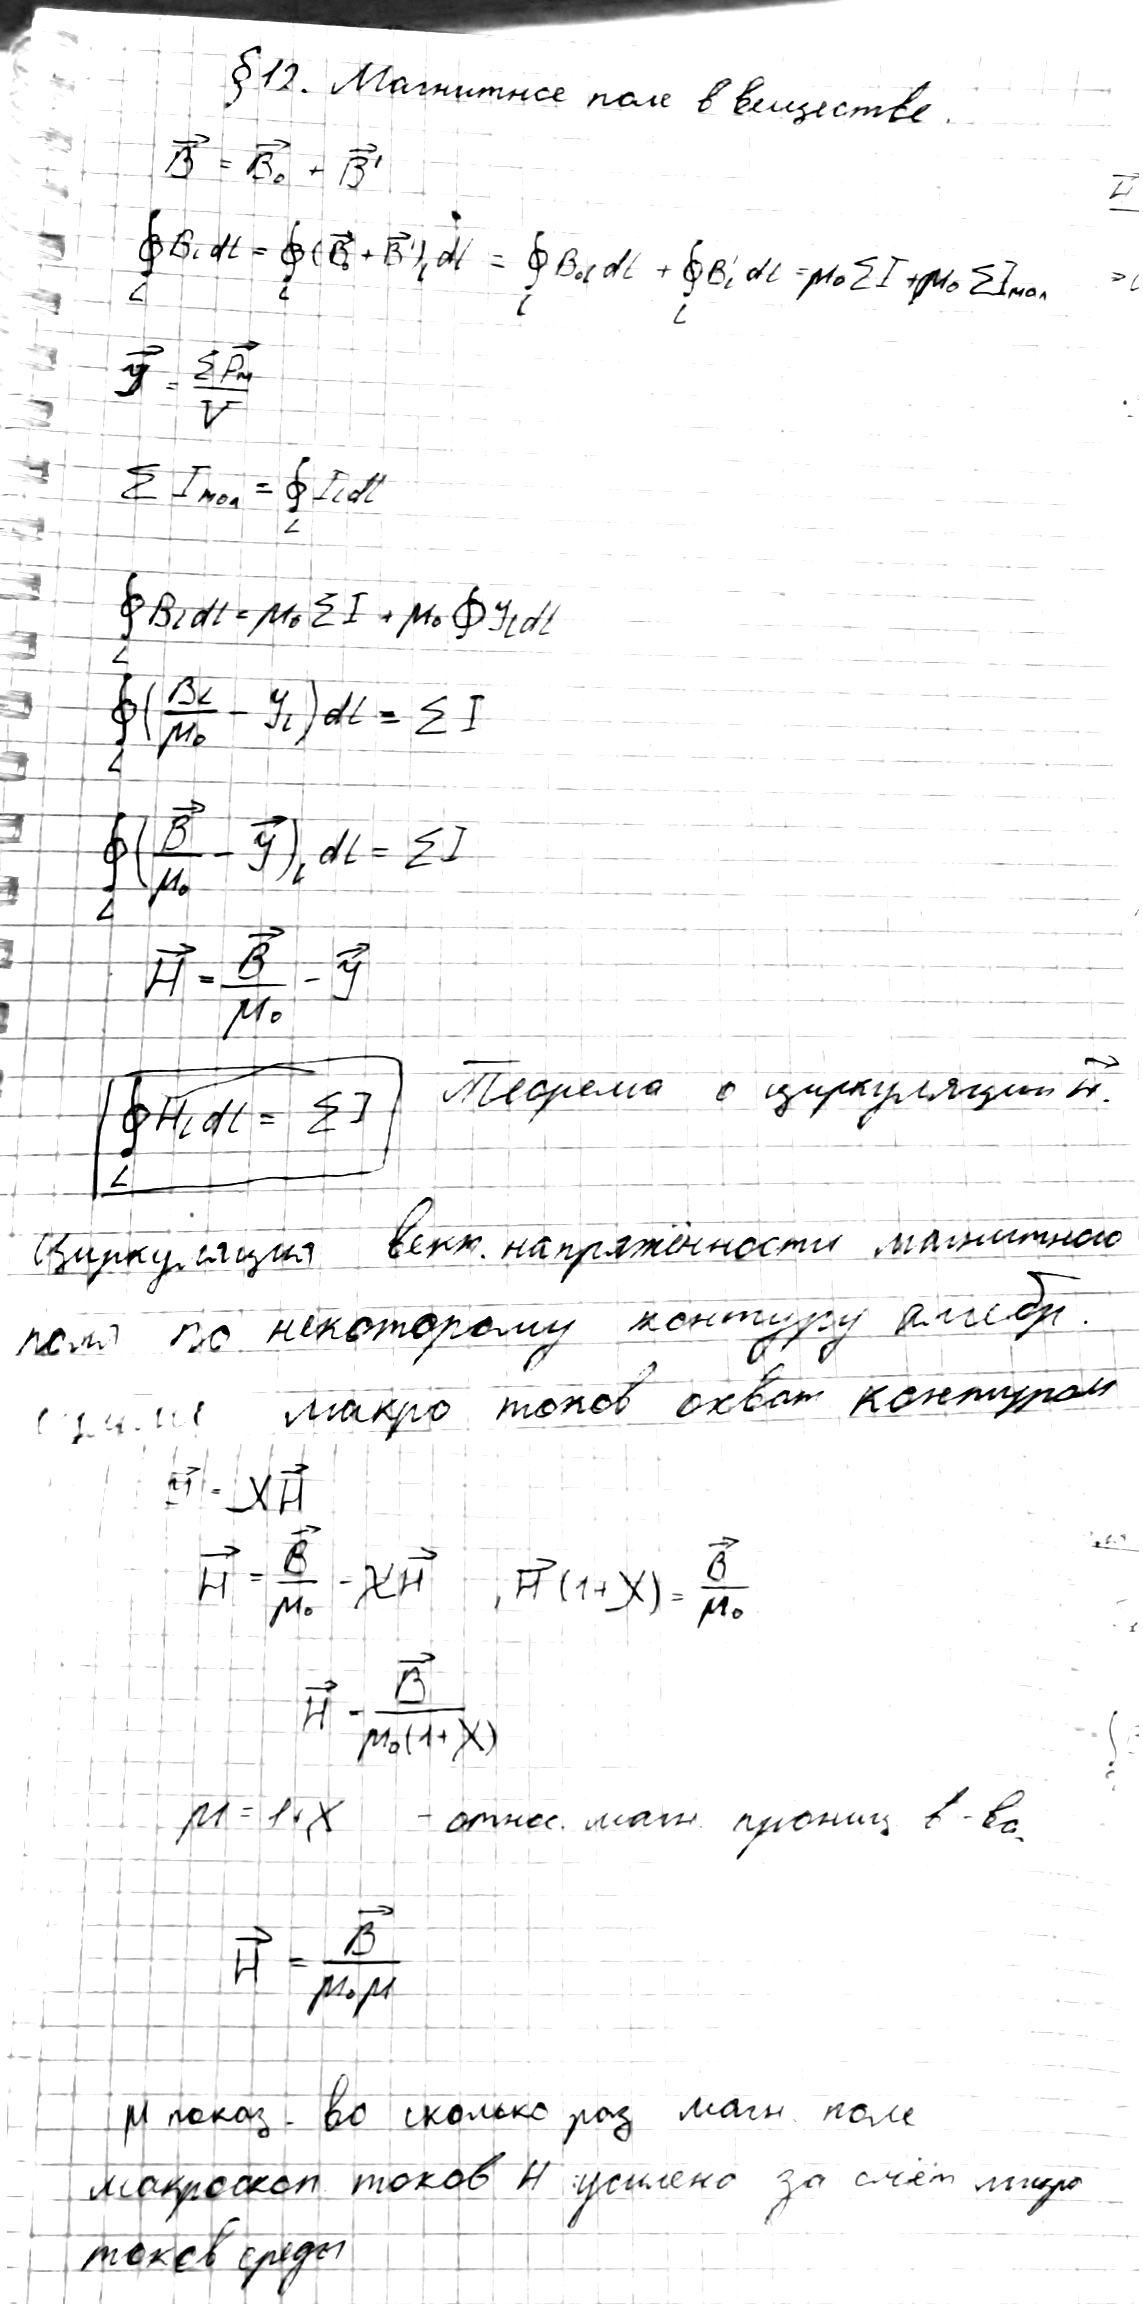 §12. Магнитное поле в веществе.
B⃗ = B⃗₀ + B⃗'
∮_L B_l dl = ∮_L (B⃗₀ + B⃗')_l dl = ∮_L B₀_l dl + ∮_L B'_l dl = μ₀ΣI + μ₀ΣI_мол
J⃗ = ΣP⃗_м / V
ΣI_мол = ∮_L I_l dl
∮_L B_l dl = μ₀ΣI + μ₀∮J_l dl
∮_L (B_l/μ₀ - J_l) dl = ΣI
∮_L (B⃗/μ₀ - J⃗)_l dl = ΣI
H⃗ = B⃗/μ₀ - J⃗
∮_L H_l dl = ΣI Теорема о циркуляции H⃗.
Циркуляция вект. напряжённости магнитного
поля по некоторому контуру алгебр.
макро токов охват контуром
= χH⃗
H⃗ = B⃗/μ₀ - χH⃗ , H⃗(1+χ) = B⃗/μ₀
H⃗ = B⃗/(μ₀(1+χ))
μ = 1+χ - относ. магн. прониц в-ва.
H⃗ = B⃗/(μ₀μ)
μ показ. во сколько раз магн. поле
макроскоп токов H усилено за счёт микро
токов среды